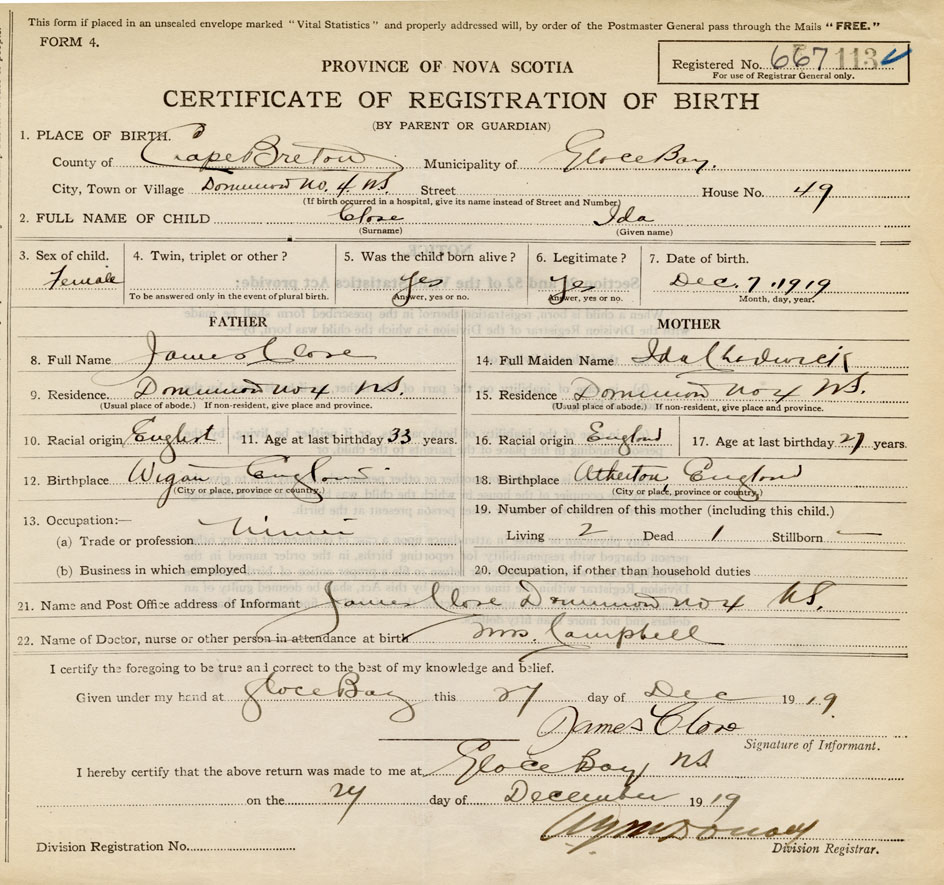 This form if placed in an unsealed envelope marked "Vital Statistics" and properly addressed will, by order of the Postmaster General pass through the Mails "FREE."
FORM 4.
Registered No. 667 113
For use of Registrar General only.
PROVINCE OF NOVA SCOTIA
CERTIFICATE OF REGISTRATION OF BIRTH
(BY PARENT OR GUARDIAN)
1. PLACE OF BIRTH.
County of Cape Breton Municipality of Glace Bay.
City, Town or Village Dominion No. 4 NS. Street House No. 49
(If birth occurred in a hospital, give its name instead of Street and Number)
2. FULL NAME OF CHILD Close Ida
(Surname) (Given name)
3. Sex of child. 4. Twin, triplet or other? 5. Was the child born alive? 6. Legitimate? 7. Date of birth.
Female Yes Yes Dec. 7. 1919
To be answered only in the event of plural birth. Answer, yes or no. Answer, yes or no. Month, day, year.
FATHER MOTHER
8. Full Name James Close 14. Full Maiden Name Ida Chadwick
9. Residence. Dominion No 4 NS. 15. Residence Dominion No 4 NS.
(Usual place of abode.) If non-resident, give place and province. (Usual place of abode.) If non-resident, give place and province.
10. Racial origin English 11. Age at last birthday 33 years. 16. Racial origin England 17. Age at last birthday 27 years.
12. Birthplace Wigan England 18. Birthplace Atherton, England
(City or place, province or country.) (City or place, province or country.)
13. Occupation:— 19. Number of children of this mother (including this child.)
(a) Trade or profession Miner Living 2 Dead 1 Stillborn —
(b) Business in which employed 20. Occupation, if other than household duties
21. Name and Post Office address of Informant James Close Dominion No 4 NS.
22. Name of Doctor, nurse or other person in attendance at birth Mrs. Campbell
I certify the foregoing to be true and correct to the best of my knowledge and belief.
Given under my hand at Glace Bay this 27 day of Dec 1919.
James Close
Signature of Informant.
I hereby certify that the above return was made to me at Glace Bay NS
on the 27 day of December 1919
Division Registration No. Division Registrar.